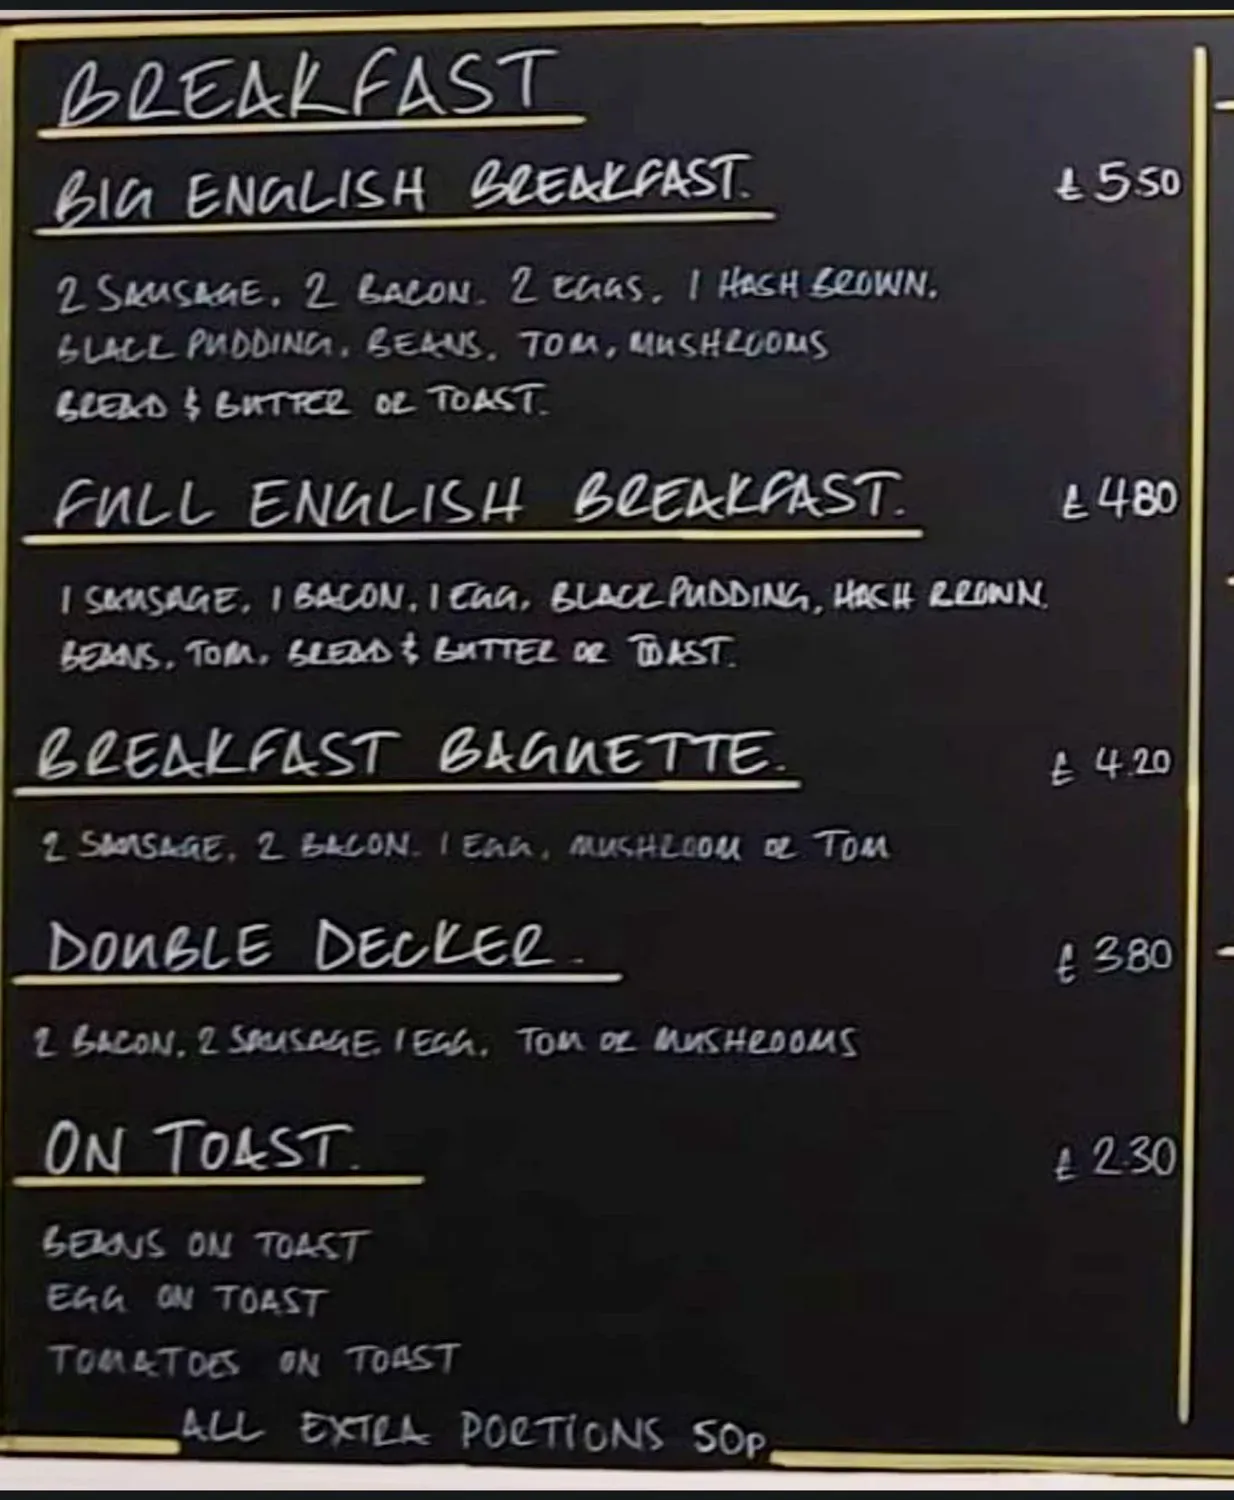 BREAKFAST
BIG ENGLISH BREAKFAST. £5.50
2 SAUSAGE. 2 BACON. 2 EGGS. 1 HASH BROWN.
BLACK PUDDING. BEANS. TOM, MUSHROOMS
BREAD & BUTTER OR TOAST.
FULL ENGLISH BREAKFAST. £480
1 SAUSAGE. 1 BACON. 1 EGG, BLACK PUDDING, HASH BROWN.
BEANS. TOM. BREAD & BUTTER OR TOAST.
BREAKFAST BAGUETTE. £4.20
2 SAUSAGE. 2 BACON. 1 EGG. MUSHROOM OR TOM
DOUBLE DECKER. £380
2 BACON. 2 SAUSAGE. 1 EGG. TOM OR MUSHROOMS
ON TOAST. £2.30
BEANS ON TOAST
EGG ON TOAST
TOMATOES ON TOAST
ALL EXTRA PORTIONS 50p